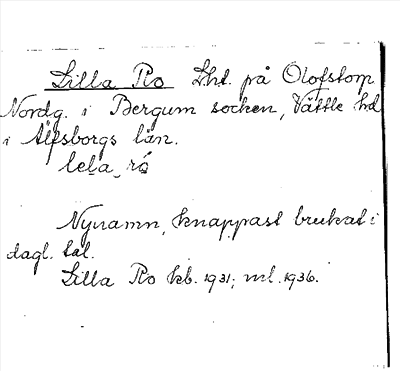 Lilla Ro Lht. på Olofstorp
Nordg. i Bergum socken, Vättle hd
i Älfsborgs län.
lela ró
Nynamn, knappast brukat i
dagl. tal.
Lilla Ro kb. 1931; ml. 1936.